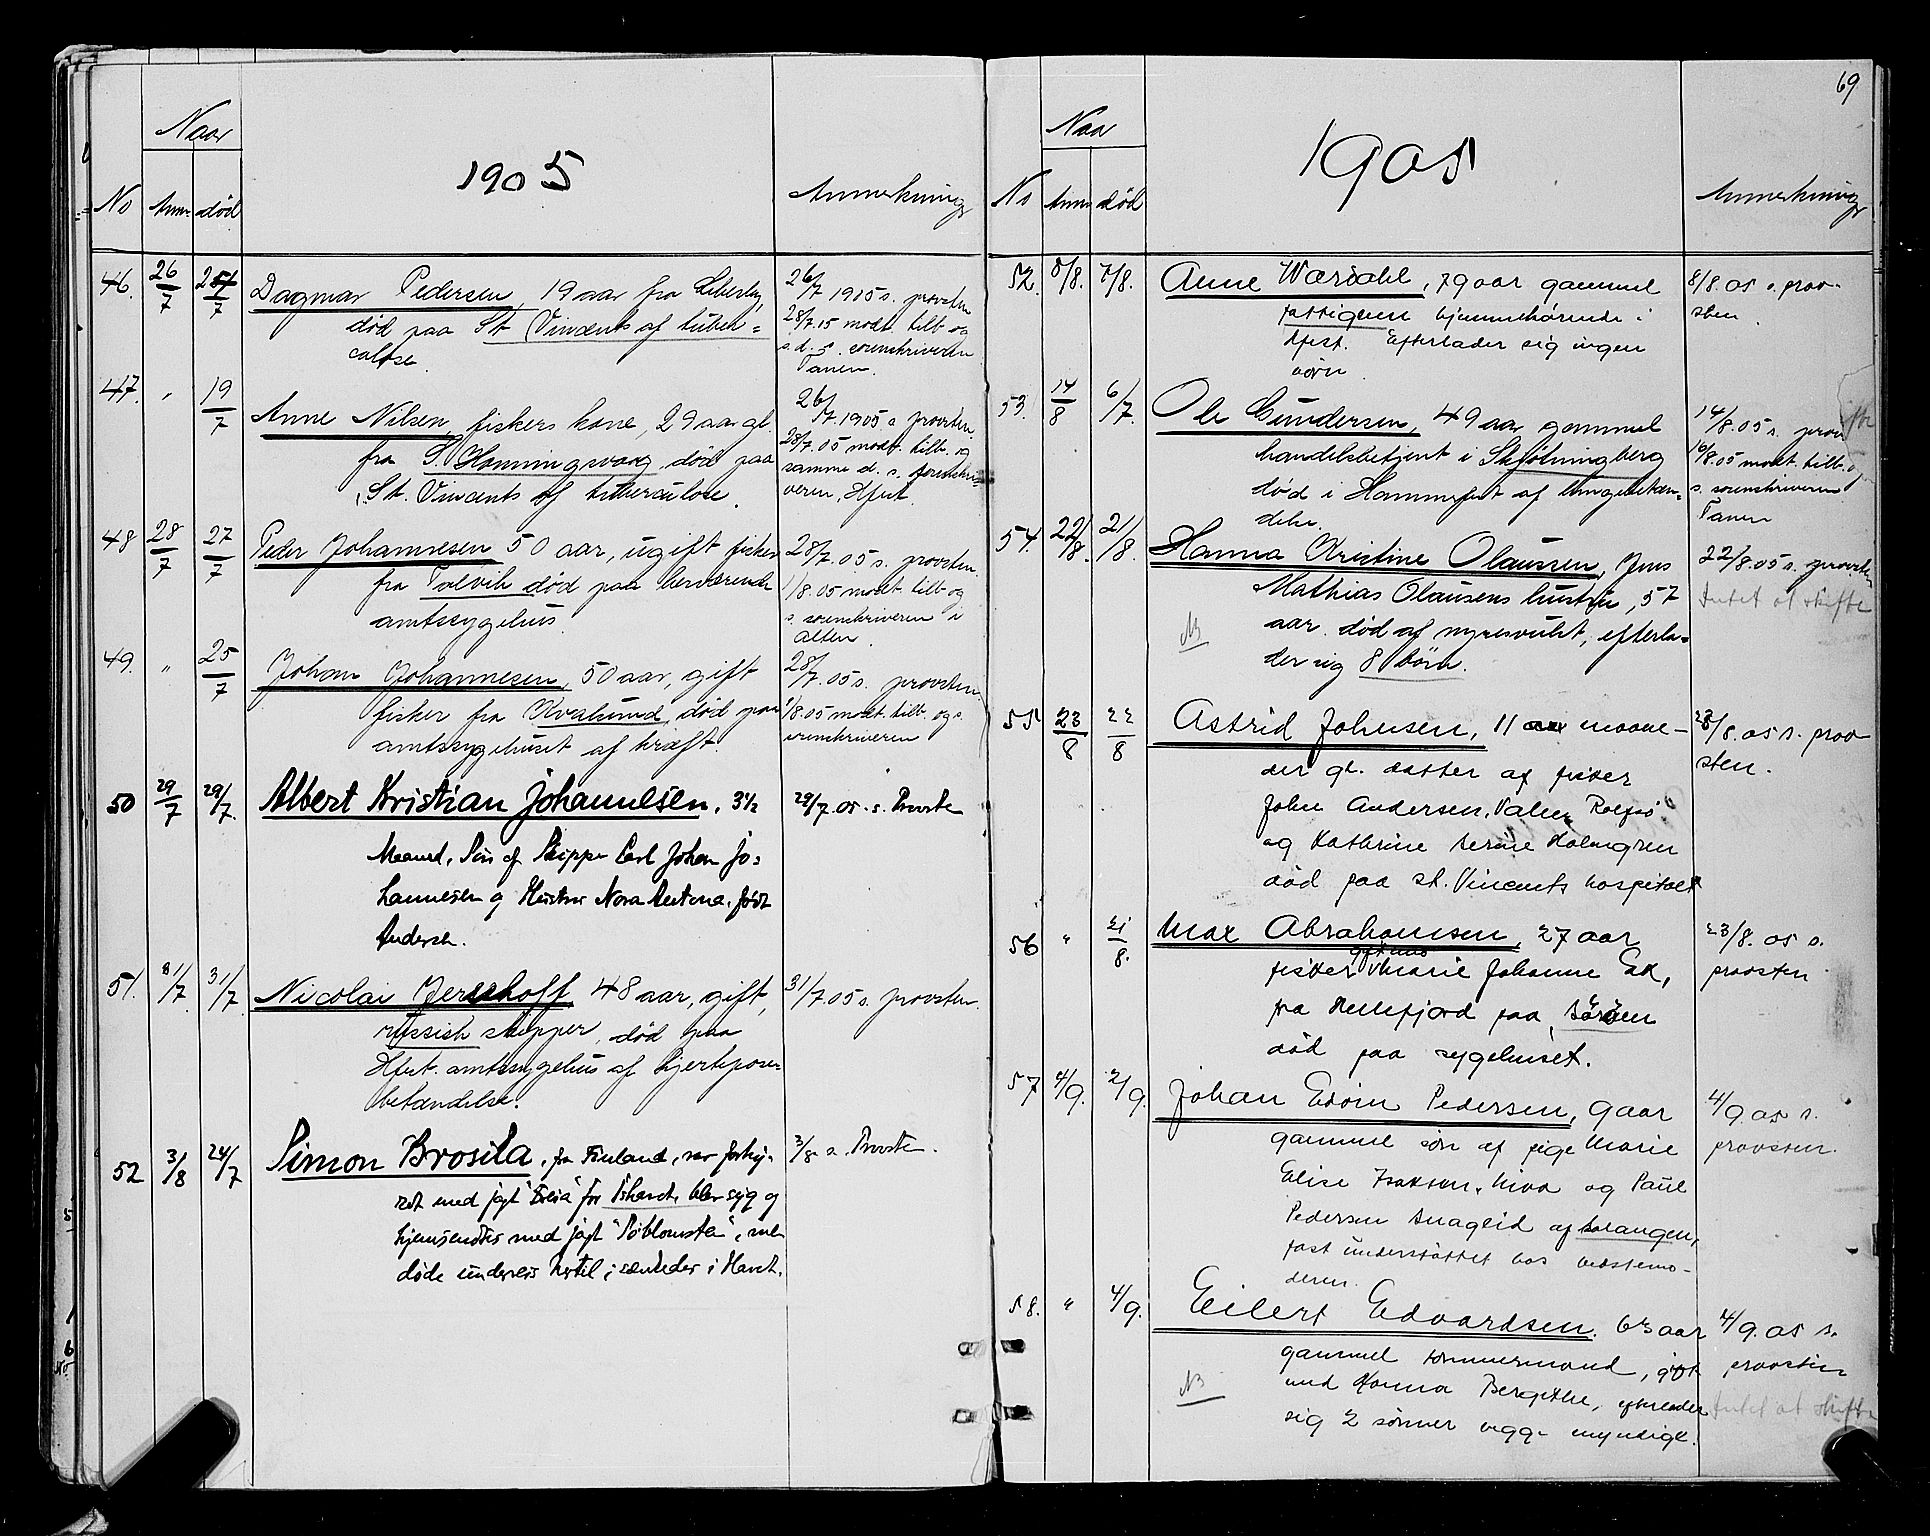 Naar
No Anm. død
1905
Anmerkning
46. 26/7 25/7 Dagmar Pedersen, 19 aar fra Lebesby,
død paa St. Vincents af tuber=
culose.
26/7 1905 s. provsten
28/7.05 modt. tilb. og
s. d. s. sorenskriveren
Tanen.
47. " 19/7 Anne Nilsen, fiskers kone, 29 aar gl.
fra S. Honningsvaag, død paa
St. Vincents af tuberculose.
26/7.1905 s. provsten.
28/7.05 modt. tilb. og
samme d. s. sorenskri=
veren, Hfest.
48 28/7 27/7 Peder Johannesen 50 aar, ugift fisker
fra Talvik død paa herværende
amtssygehus.
28/7.05 s. provsten.
1/8.05 modt. tilb. og
s. sorenskriveren i
Alten.
49. " 25/7 Johan Johannesen, 50 aar, gift
fisker fra Kvalsund, død paa
amtssygehuset af kræft.
28/7.05 s. provsten
1/8.05 modt. tilb. og s.
orenskriveren
50 29/7 29/7. Albert Kristian Johannesen, 3½
Maaned, Søn af Skipper Carl Johan Jo=
hannesen og Hustru Nora Antona, født
Andersen.
29/7.05. s. Provsten
51. 31/7. 31/7. Nicolai Jershoff 48 aar, gift,
russisk skipper, død paa
Hfest. amtssygehus af hjerteposе=
betændelse.
31/7.05 s. provsten.
52 3/8 24/7 Simon Brosila, fra Finland, var forhy=
ret med jagt " " for Ishavet, blev syg og
hjemsendtes med jagt " ", men
døde underveis hertil; sænkedes i Havet.
3/8 s. Provsten.
69
Naar
No Anm død
1905
Anmerkning
52. 8/8. 7/8. Anne Wærdahl, 79 aar gammel
fattiglem hjemmehørende i
Hfest. Efterlader sig ingen
børn
8/8.05 s. prov-
sten.
53. 14/8 6/7. Ole Gundersen, 49 aar gammel
handelsbetjent i Skjøtningberg
død i Hammerfest af lungebetæn=
delse.
14/8.05 s. provsten
16/8.05 modt. tilb. og
s. sorenskriveren
Tanen
54. 22/8. 21/8. Hanna Kristine Olaussen, Jens
Mathias Olausens hustru, 57
aar død af nyresvulst, efterla=
der sig 8 børn.
NB
22/8.05 s. provsten
Intet at skifte
55 23/8 22/8 Astrid Johnsen, 11 maane-
der gl. datter af fisker
John Andersen, Rolfsø
og Kathrine Serine Holmgren
død paa st. Vincents hospital
23/8.05 s. prov
sten.
56 " 21/8. Max Abrahamsen, 27 aar
fisker gift med Marie Johanne Ek,
fra Hellefjord paa Sørøen
død paa sygehuset.
23/8.05 s.
provsten
57 4/9. 2/9. Johan Edvin Pedersen, 9 aar
gammel søn af pige Marie
Elise Isaksen, og Paul
Pedersen af
fast understøttet hos bedstemo-
deren.
4/9.05 s.
provsten.
58. " 4/9. Eilert Edvardsen, 63 aar
gammel tømmermand, gift
med Hanna Bergithe, efterlader
sig 2 sønner begge myndige.
NB
4/9.05 s.
provsten
Intet at skifte